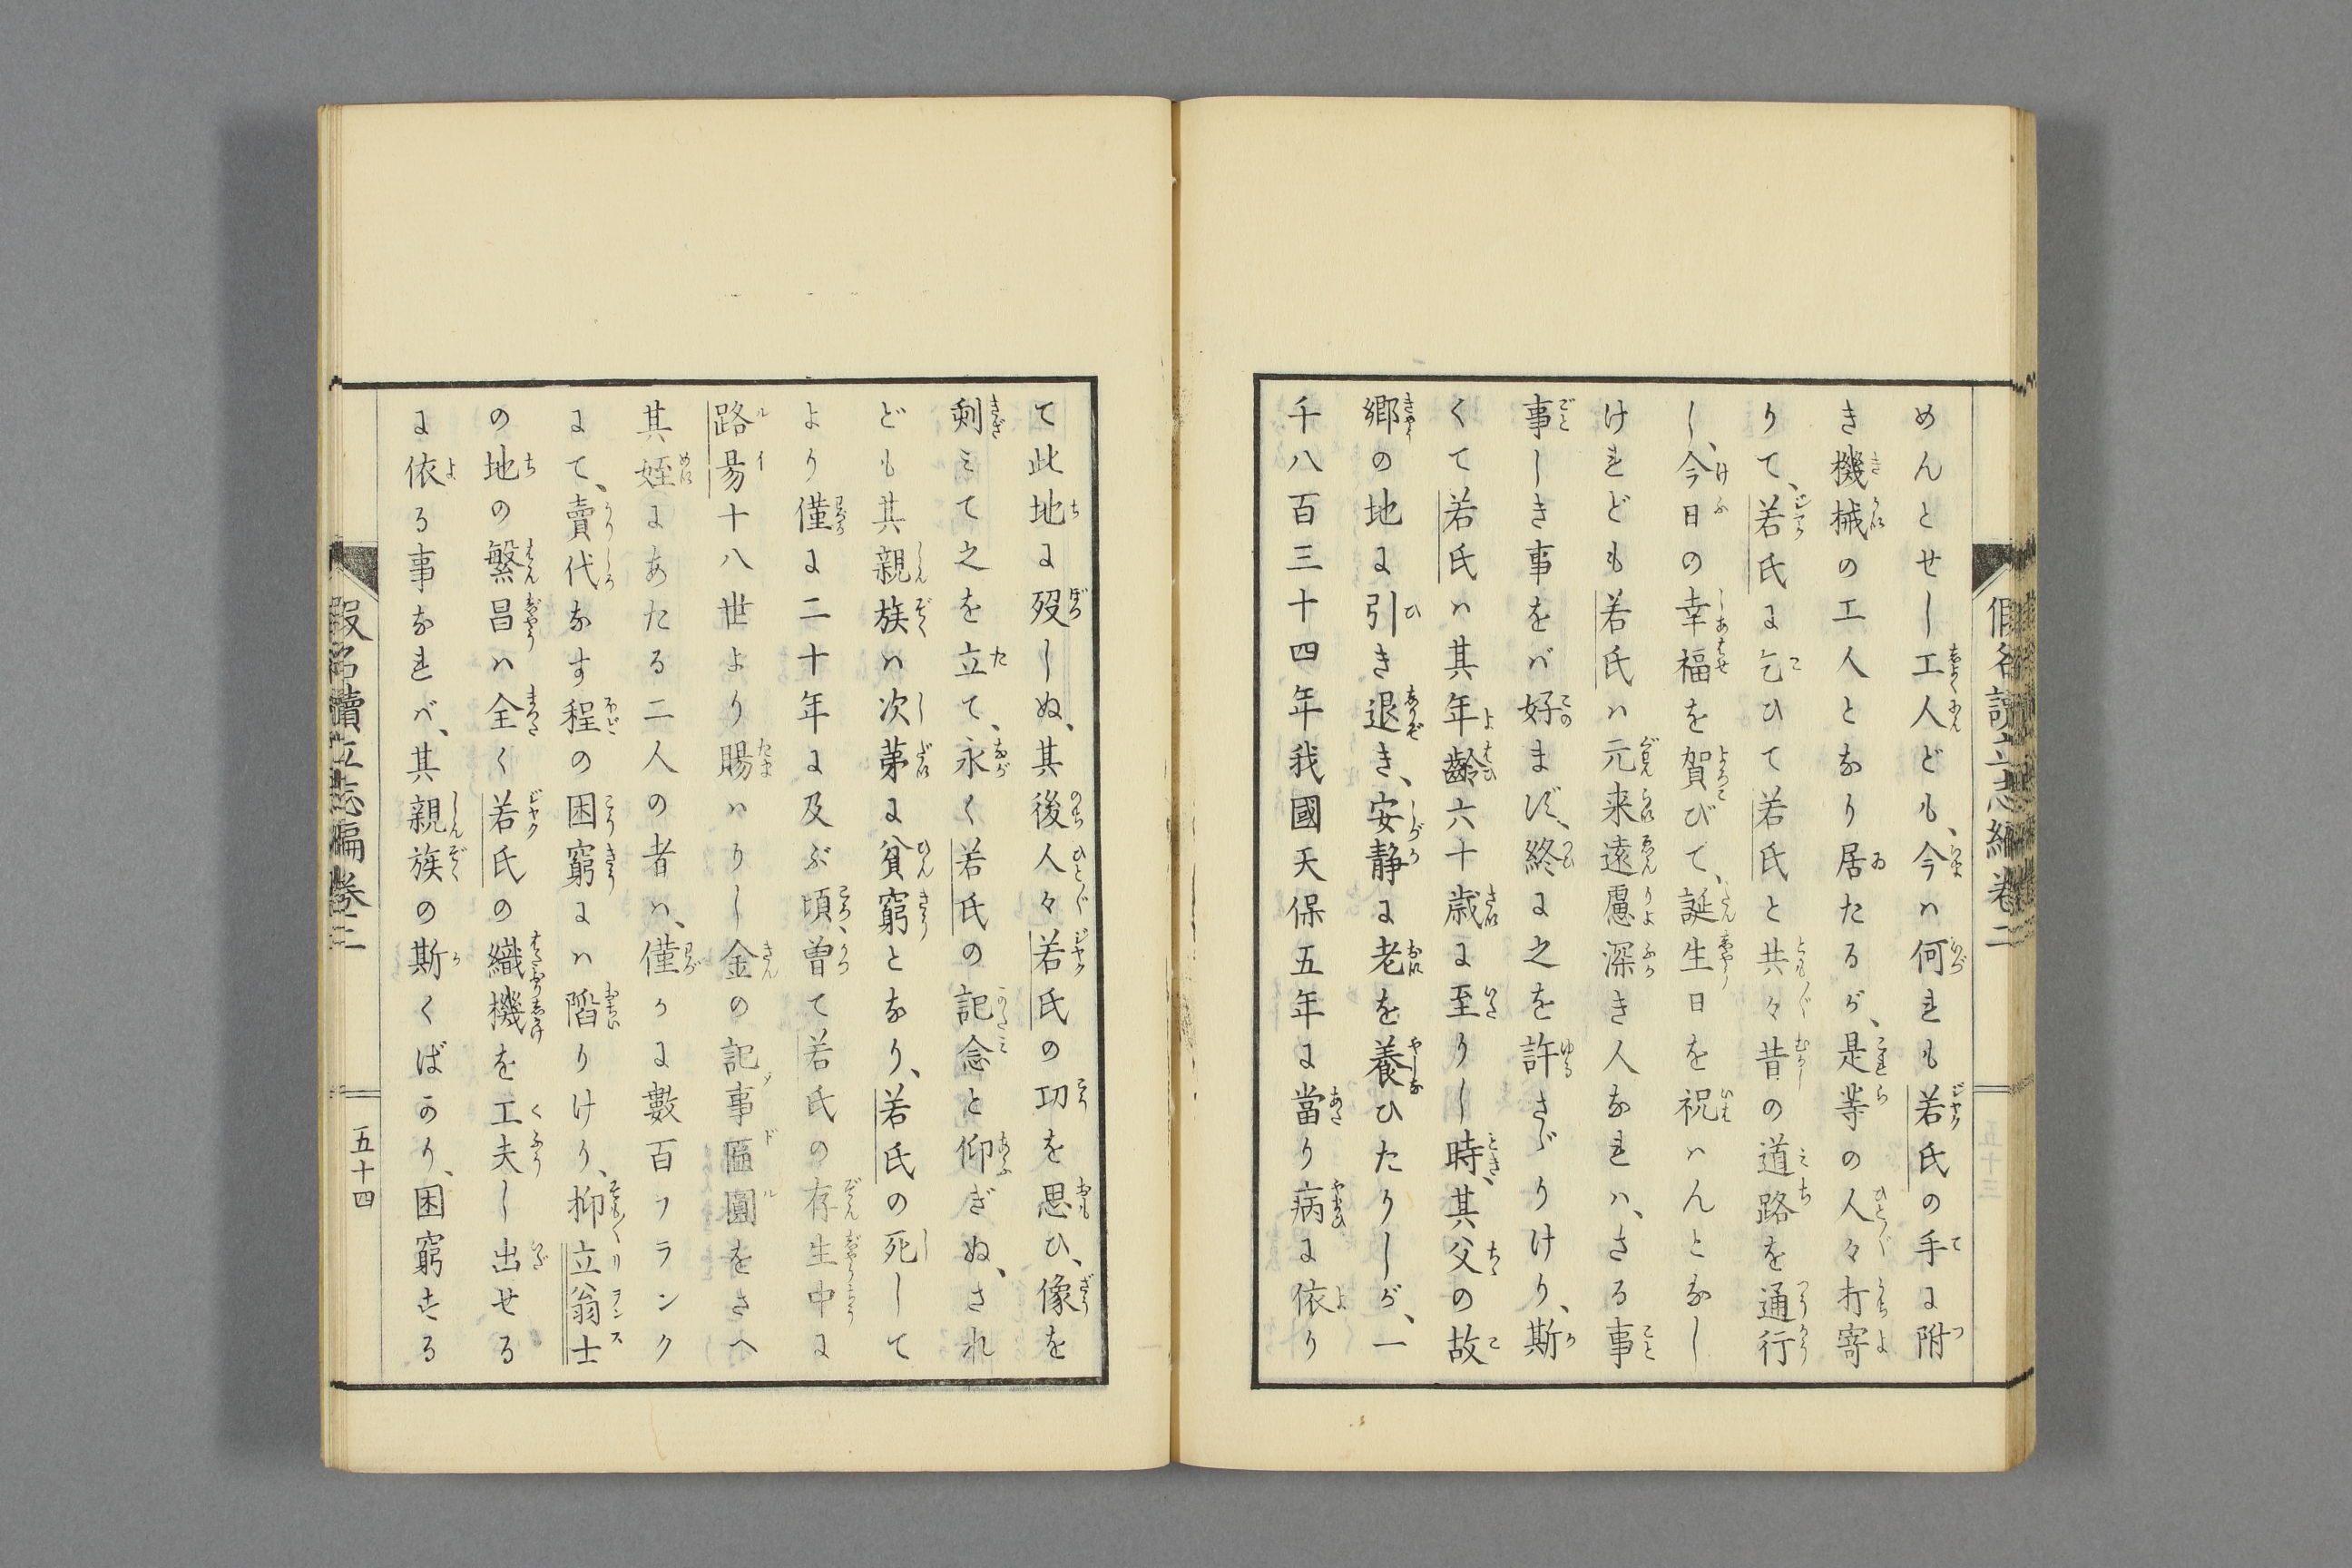 假名讀立志編 卷二
めんとせし工人ども、今ハ何れも若氏の手に附
き機械の工人となり居たるが、是等の人々打寄
りて、若氏に乞ひて若氏と共々昔の道路を通行
し、今日の幸福を賀びて、誕生日を祝ハんとなし
けれども若氏ハ元来遠慮深き人なれハ、さる事
事しき事をバ好まず、終に之を許さゞりけり、斯
くて若氏ハ其年齢六十歳に至りし時、其父の故
郷の地に引き退き、安静に老を養ひたりしが、一
千八百三十四年我國天保五年に當り病に依り
て此地に歿しぬ、其後人々若氏の功を思ひ、像を
刻みて之を立て、永く若氏の記念と仰ぎぬ、され
ども其親族ハ次第に貧窮となり、若氏の死して
より僅に二十年に及ぶ頃、曽て若氏の存生中に
路易十八世より賜ハりし金の記事區圓をさへ
其姪にあたる二人の者ハ、僅かに數百フランク
にて、賣代なす程の困窮にハ陷りけり、抑立翁士
の地の繁昌ハ全く若氏の織機を工夫し出せる
に依る事なれバ、其親族の斯くばかり、困窮せる
假名讀立志編 卷二
五十四